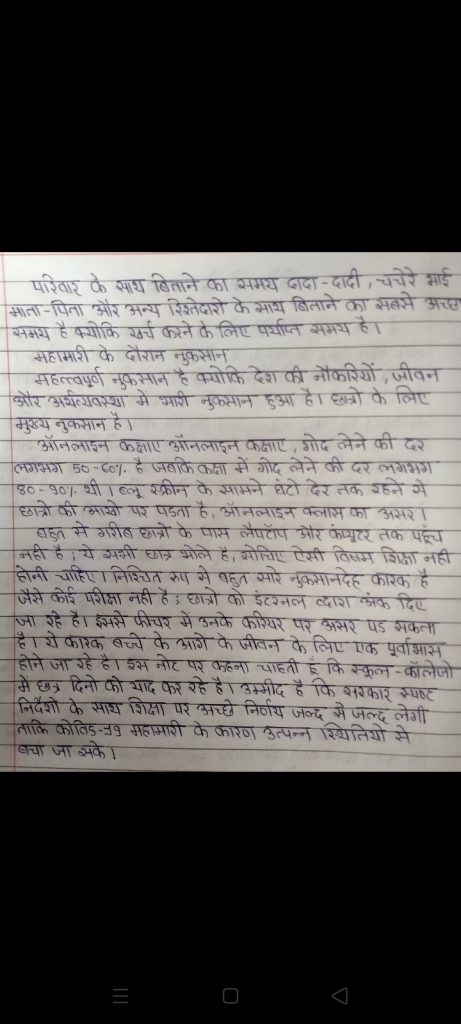 परिवार के साथ बिताने का समय दादा-दादी, चचेरे भाई
माता-पिता और अन्य रिश्तेदारो के साथ बिताने का सबसे अच्छा
समय है क्योकि खर्च करने के लिए पर्याप्त समय है।
महामारी के दौरान नुकसान
महत्वपूर्ण नुकसान है क्योकि देश की नौकरियों, जीवन
और अर्थव्यवस्था मे भारी नुकसान हुआ है। छात्रो के लिए
मुख्य नुकसान है।
ऑनलाइन कक्षाए ऑनलाइन कक्षाए, गोद लेने की दर
लगभग 50-60% है जबकि कक्षा में गोद लेने की दर लगभग
80-90% थी। ब्लू स्क्रीन के सामने घंटो देर तक रहने से
छात्रो की आखो पर पडता है, ऑनलाइन क्लास का असर।
बहुत से गरीब छात्रो के पास लैपटॉप और कंप्यूटर तक पहुंच
नही है; ये सभी छात्र भोले है, सोचिए ऐसी विषम शिक्षा नही
होनी चाहिए। निश्चित रूप से बहुत सारे नुकसानदेह कारक है
जैसे कोई परीक्षा नही है; छात्रो को इंटरनल व्दारा अंक दिए
जा रहे है। इससे फीचर मे उनके करियर पर असर पड सकता
है। ये कारक बच्चे के आगे के जीवन के लिए एक पूर्वाभास
होने जा रहे है। इस नोट पर कहना चाहती हूं कि स्कूल-कॉलेजो
में छात्र दिनो को याद कर रहे है। उम्मीद है कि सरकार स्पष्ट
निर्देशो के साथ शिक्षा पर अच्छे निर्णय जल्द से जल्द लेगी
ताकि कोविड-19 महामारी के कारण उत्पन्न स्थितियो से
बचा जा सके।